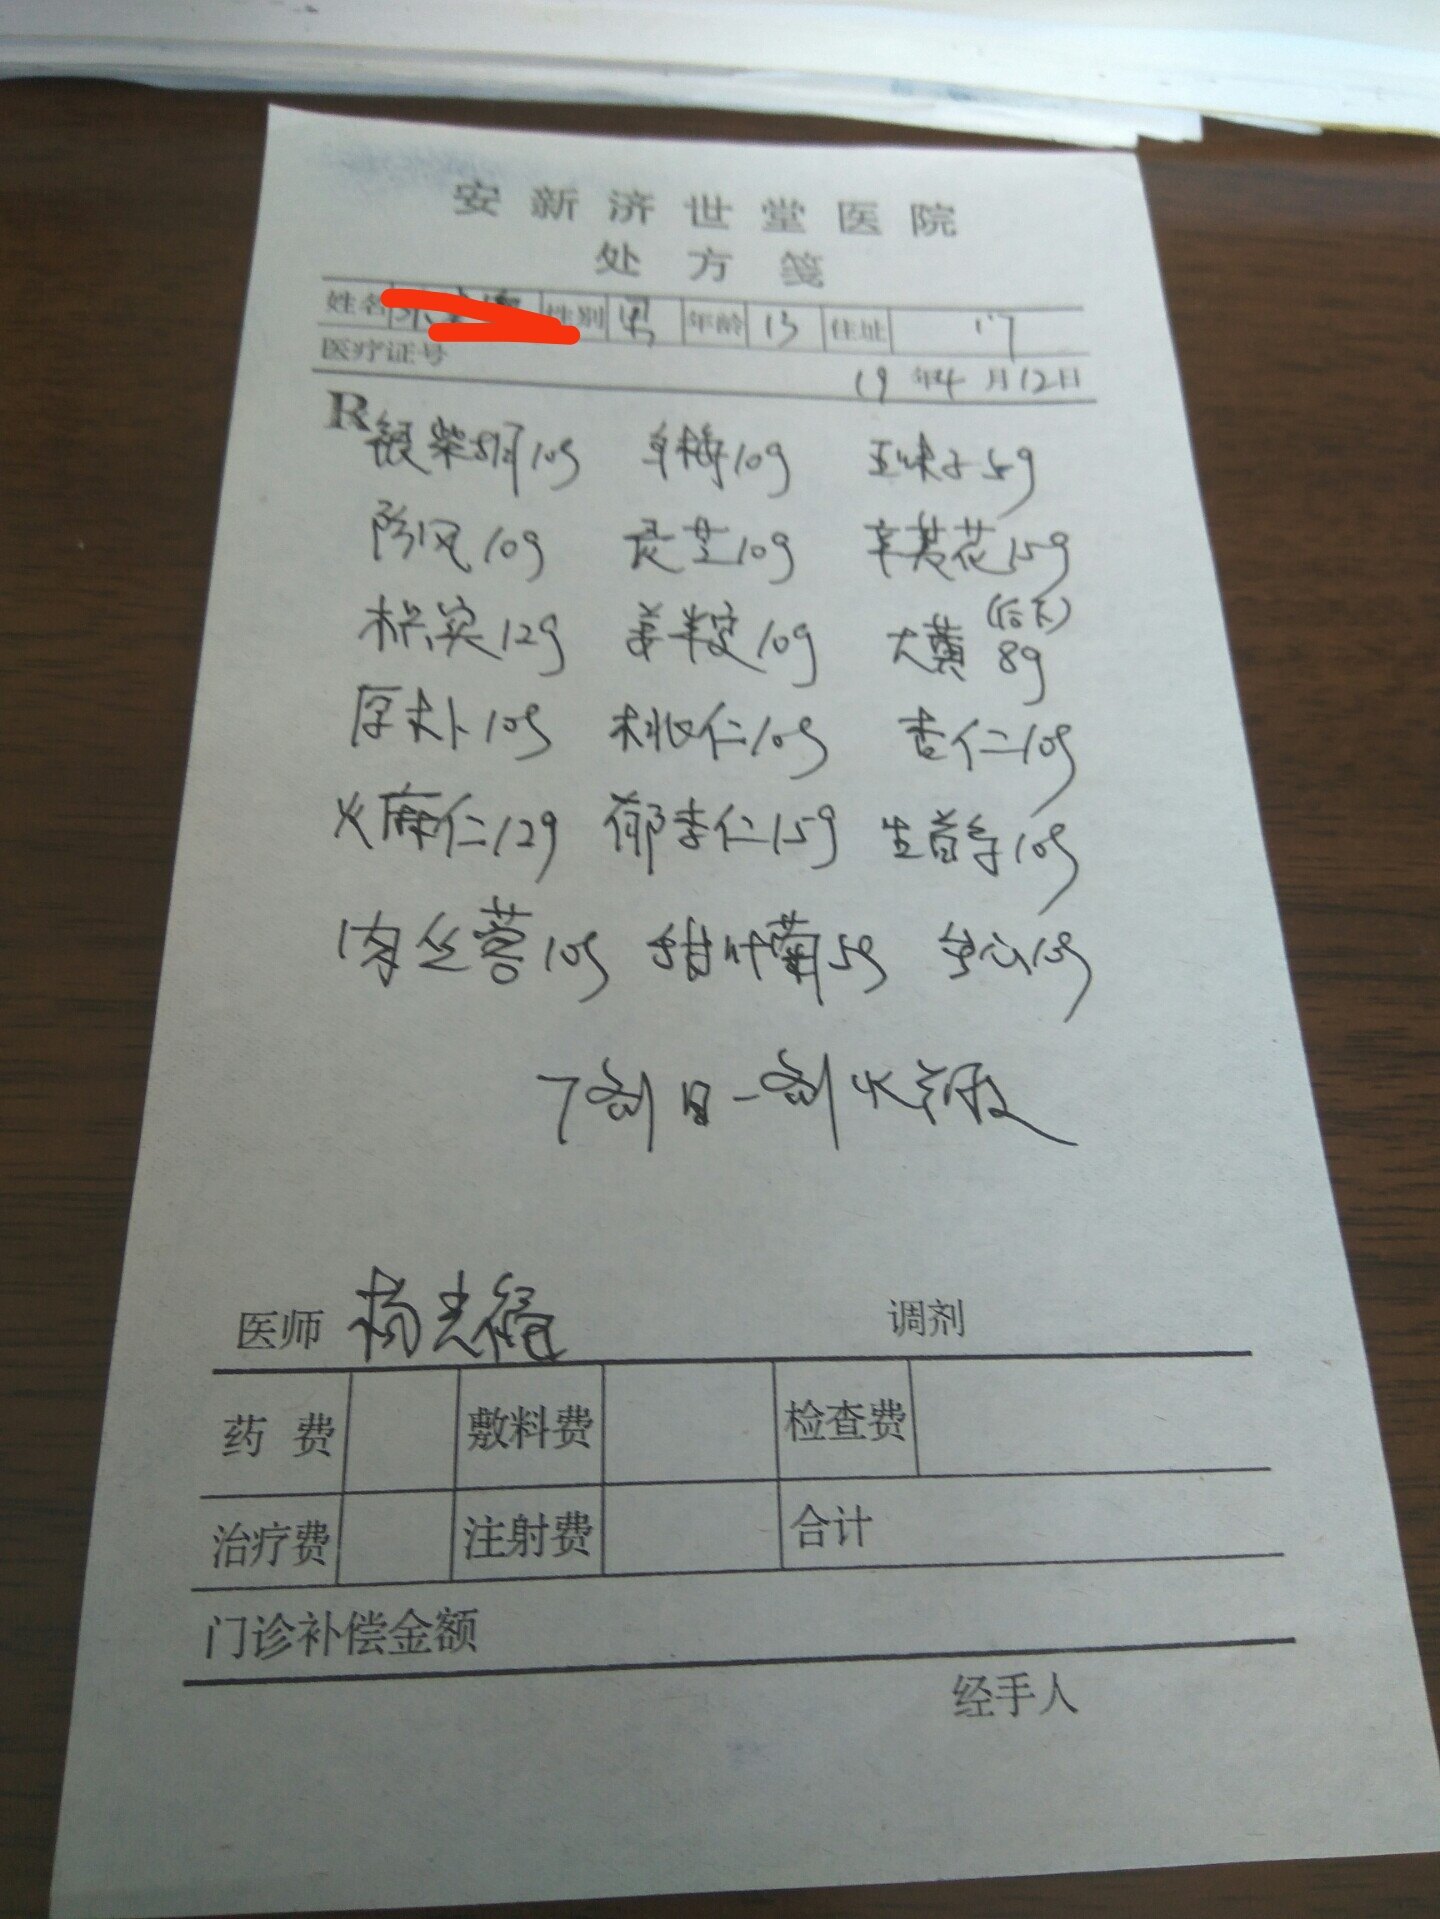 安新济世堂医院
处方笺
姓名 性别 男 年龄 13 住址
医疗证号
19年4月12日
R
银柴胡10g 乌梅10g 五味子5g
防风10g 灵芝10g 辛荑花15g
枳实12g 姜半夏10g 大黄(后下)8g
厚朴10g 桃仁10g 杏仁10g
火麻仁12g 郁李仁15g 生首乌10g
肉苁蓉10g 甜叶菊5g
7剂日一剂水煎服
医师 杨 调剂
药费 敷料费 检查费
治疗费 注射费 合计
门诊补偿金额
经手人